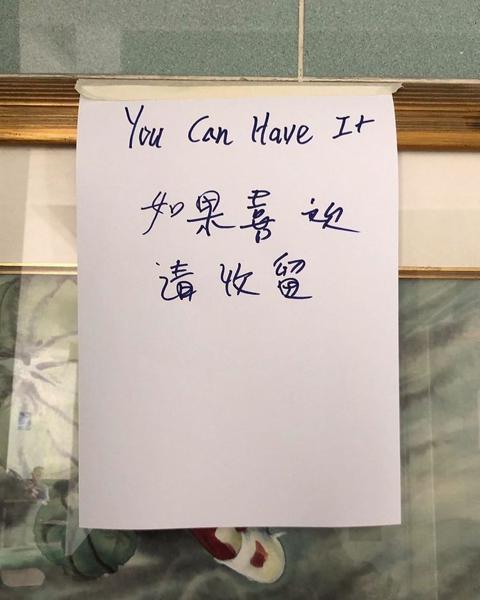 You Can Have It
如果喜欢
请收留